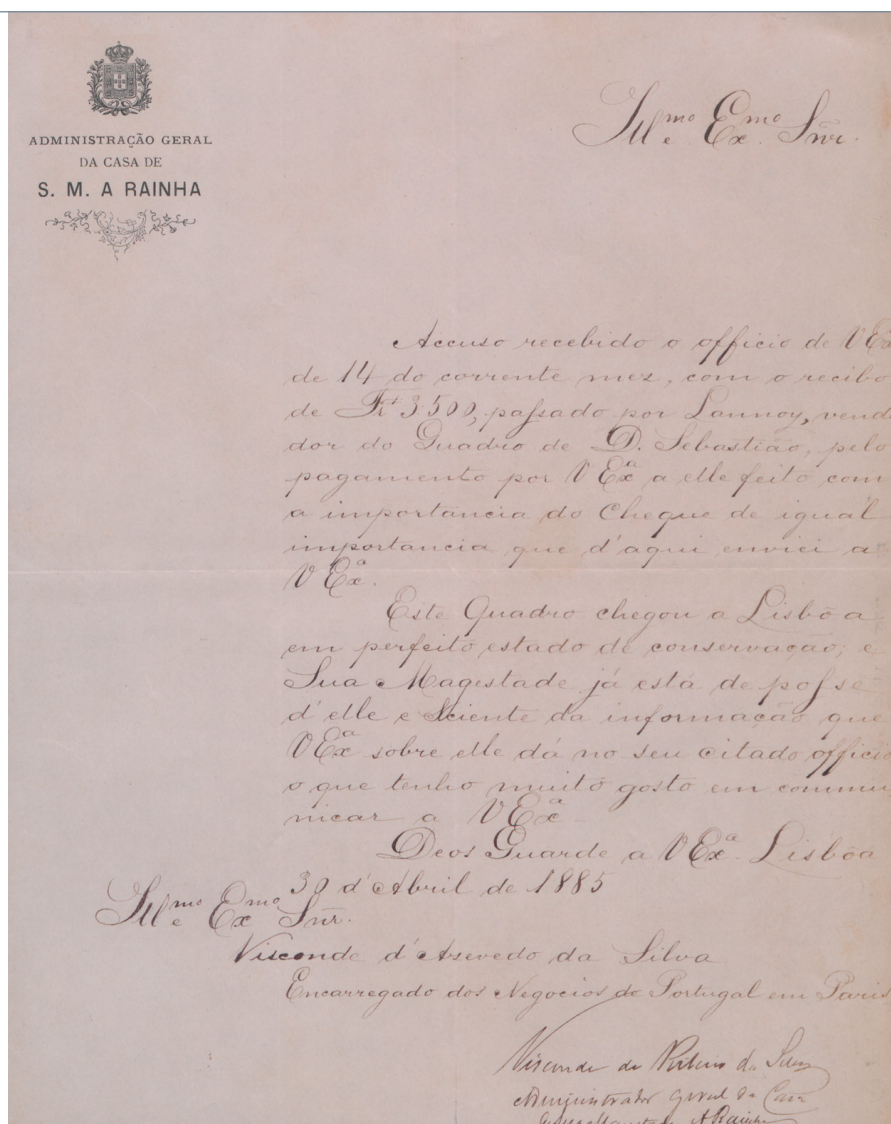 ADMINISTRAÇÃO GERAL
DA CASA DE
S. M. A RAINHA
Ill.mo e Ex.mo Snr.
Accuso recebido o officio de V Ex.a
de 14 do corrente mez, com o recibo
de Frs 3.500, passado por Lannoy, vend
dor do Quadro de D. Sebastião, pelo
pagamento por V Ex.a a elle feito com
a importancia do Cheque de igual
importancia que d'aqui enviei a
V Ex.a.
Este Quadro chegou a Lisbôa
em perfeito estado de conservação; e
Sua Magestade já está de posse
d'elle e sciente da informação que
V Ex.a sobre elle dá no seu citado officio
o que tenho muito gosto em commu
nicar a V Ex.a
Deos Guarde a V Ex.a. Lisbôa
30 d'Abril de 1885
Ill.mo e Ex.mo Snr.
Visconde d'Azevedo da Silva
Encarregado dos Negocios de Portugal em Paris
Visconde de Ribeiro da Silva
Administrador Geral da Casa
de Sua Magestade A Rainha